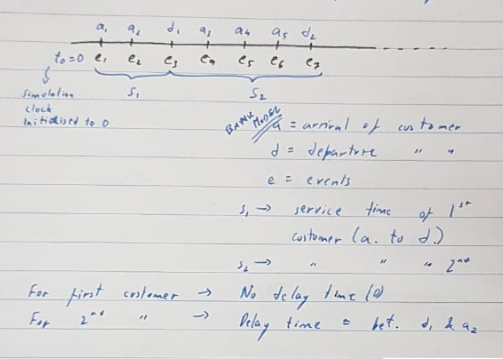 a₁ a₂ d₁ a₃ a₄ a₅ d₂
t₀=0 e₁ e₂ e₃ e₄ e₅ e₆ e₇
S₁ S₂
simulation
clock
initialised to 0
BANK MODEL
a = arrival of customer
d = departure " "
e = events
S₁ → service time of 1st
customer (a. to d.)
S₂ → " " " 2nd
For first customer → No delay time (0)
For 2nd " → Delay time = bet. d₁ & a₂